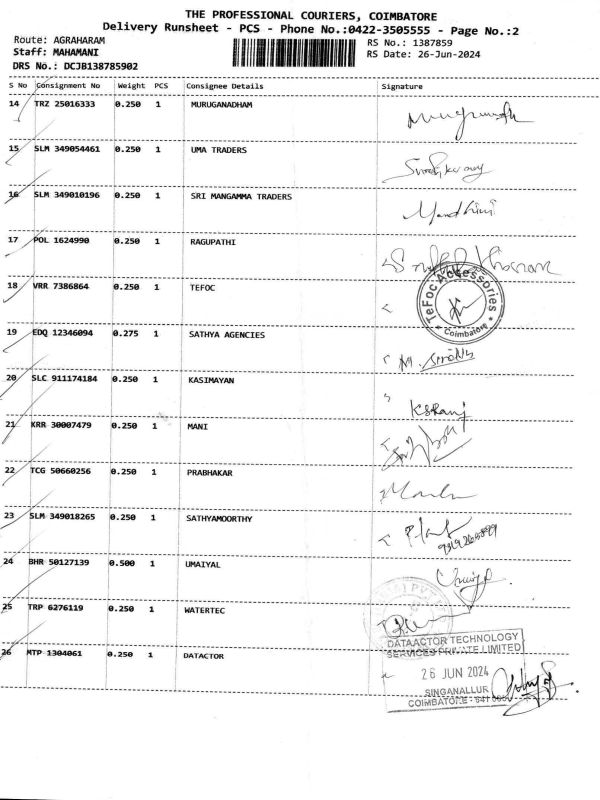 THE PROFESSIONAL COURIERS, COIMBATORE
Delivery Runsheet - PCS - Phone No.:0422-3505555 - Page No.:2
Route: AGRAHARAM RS No.: 1387859
Staff: MAHAMANI RS Date: 26-Jun-2024
DRS No.: DCJB138785902
S No Consignment No Weight PCS Consignee Details Signature
14 TRZ 25016333 0.250 1 MURUGANADHAM
15 SLM 349054461 0.250 1 UMA TRADERS
16 SLM 349010196 0.250 1 SRI MANGAMMA TRADERS
17 POL 1624990 0.250 1 RAGUPATHI
18 VRR 7386864 0.250 1 TEFOC
TeFoc Accessories
* Coimbatore *
19 EDQ 12346094 0.275 1 SATHYA AGENCIES
20 SLC 911174184 0.250 1 KASIMAYAN
21 KRR 30007479 0.250 1 MANI
22 TCG 50660256 0.250 1 PRABHAKAR
23 SLM 349018265 0.250 1 SATHYAMOORTHY
24 BHR 50127139 0.500 1 UMAIYAL
25 TRP 6276119 0.250 1 WATERTEC
26 MTP 1304061 0.250 1 DATACTOR
DATAACTOR TECHNOLOGY
SERVICES PRIVATE LIMITED
26 JUN 2024
SINGANALLUR
COIMBATORE - 641